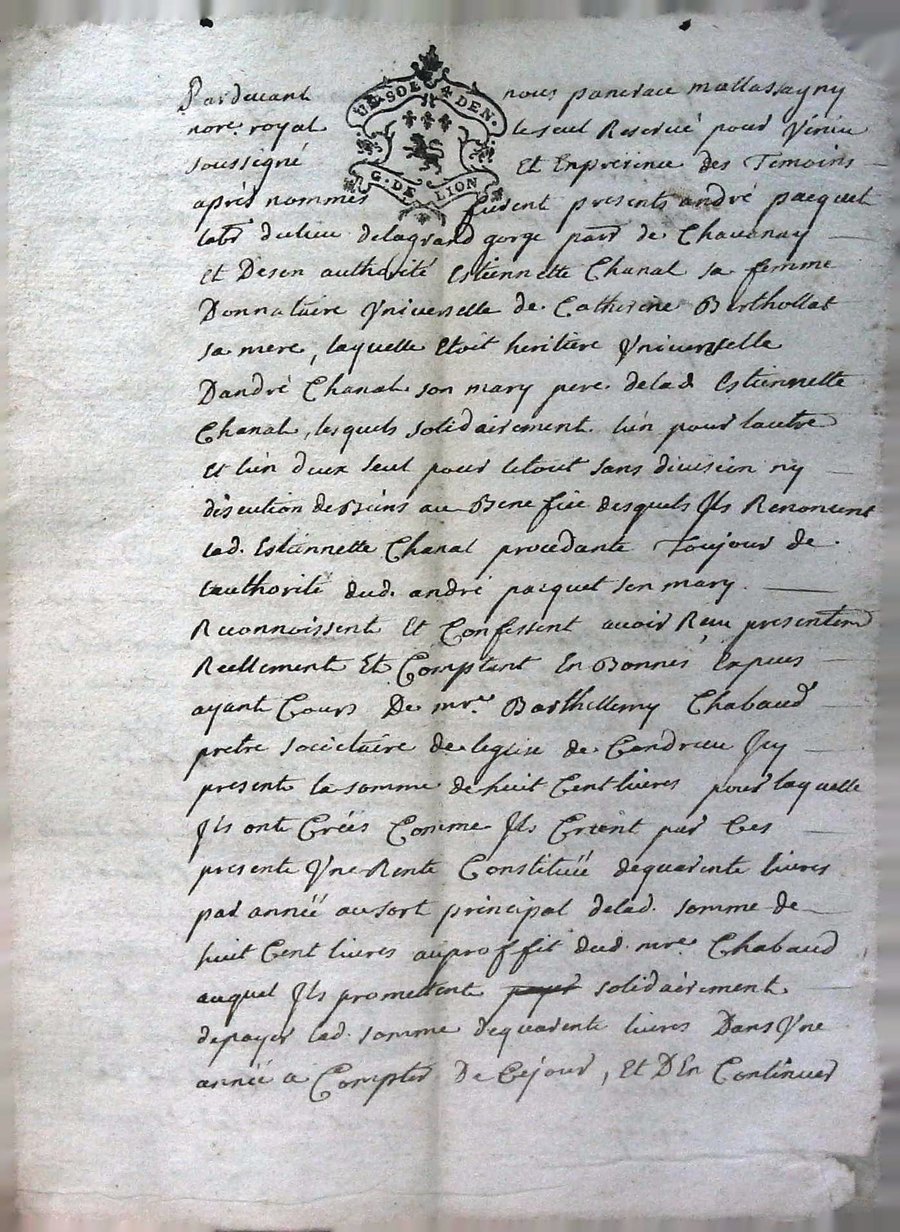 UN SOL 4 DEN.
G. DE LION
Pardevant nous pancrace mallassagny
nore. royal le seul Reservé pour
soussigné Et Enpresence des Temoins
après nommés furent presents andré pacquet
labr dulieu delagrand gorge parr de Chavanay
Et Deson authorité Estiennette Chanal sa femme
Donnataire Vniverselle de Catherine Berthollat
sa mere, laquelle Etoit heritiere Vniverselle
Dandré Chanal son mary pere delad Estiennette
Chanal, lesquels solidairement lun pour lautre
Et lun deux seul pour letout sans division ny
discution deBiens au Benefice desquels Ils Renoncent
lad. Estiennette Chanal procedante Toujour de
lauthorité dud. andré pacquet son mary.
Reconnoissent Et Confessent avoir Reçu presentemt
Reellement Et Comptant En Bonnes Especes
ayant Cours De mre. Barthellemy Chabaud
pretre societaire de leglise de Condrieu Icy
present la somme dehuit Cent livres pour laquelle
Ils ont Créés Comme Ils Créent par Ces
presente Vne Rente Constituéé dequarente livres
par annéé ausort principal delad. somme de
huit Cent livres auproffit dud. mre. Chabaud
auquel Ils promettent payer solidairement
depayer lad. somme dequarente livres Dans Vne
annéé a Compter De Cejour, Et DEn Continuer